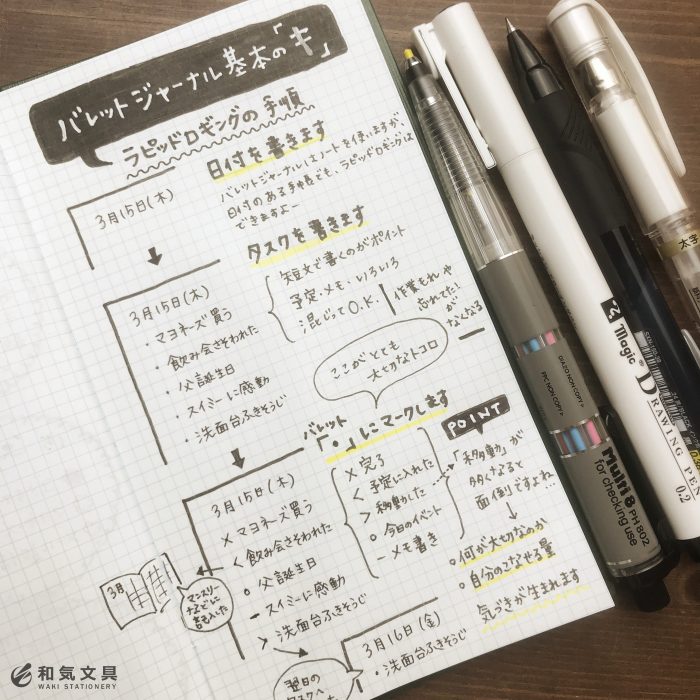 バレットジャーナル基本の「キ」
ラピッドロギングの手順
日付を書きます
バレットジャーナルはノートを使いますが、
日付のある手帳でも、ラピッドロギングは
できますよー
3月15日(木)
タスクを書きます
短文で書くのがポイント
予定・メモ・いろいろ
混じってO.K.
作業もれや
忘れてた!
が
なくなる
3月15日(木)
・マヨネーズ買う
・飲み会さそわれた
・父誕生日
・スイミーに感動
・洗面台ふきそうじ
ここがとても
大切なトコロ
バレット
「・」にマークします
3月15日(木)
× マヨネーズ買う
< 飲み会さそわれた
○ 父誕生日
- スイミーに感動
> 洗面台ふきそうじ
× 完了
< 予定に入れた
> 移動した
○ 今日のイベント
- メモ書き
POINT
「移動」が
多くなると
面倒ですよね…
・何が大切なのか
・自分のこなせる量
気づきが生まれます
3月
マンスリー
などに
書き入れた
3月16日(金)
・洗面台ふきそうじ
翌日の
タスクへ
和気文具
WAKI STATIONERY
DIAZO NON COPY>
PPC NON COPY>
Multi 8 PH 802
for checking use
Magic DRAWING PEN
0.2
太字